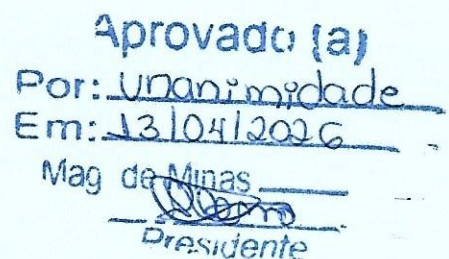 Aprovado (a)
Por: Unanimidade
Em: 13/04/2026
Mag de Minas
Presidente